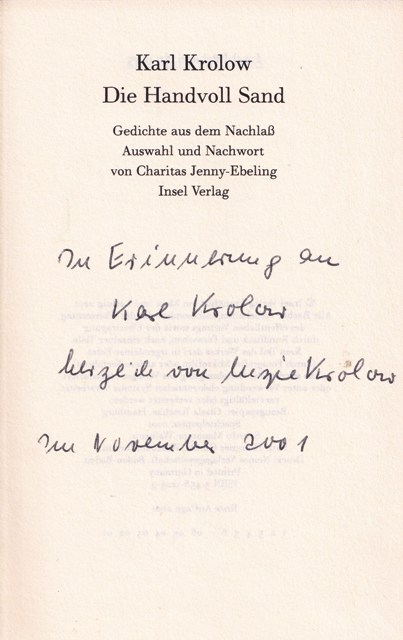 Karl Krolow
Die Handvoll Sand
Gedichte aus dem Nachlaß
Auswahl und Nachwort
von Charitas Jenny-Ebeling
Insel Verlag
In Erinnerung an
Karl Krolow
herzlich von Luzie Krolow
im November 2001